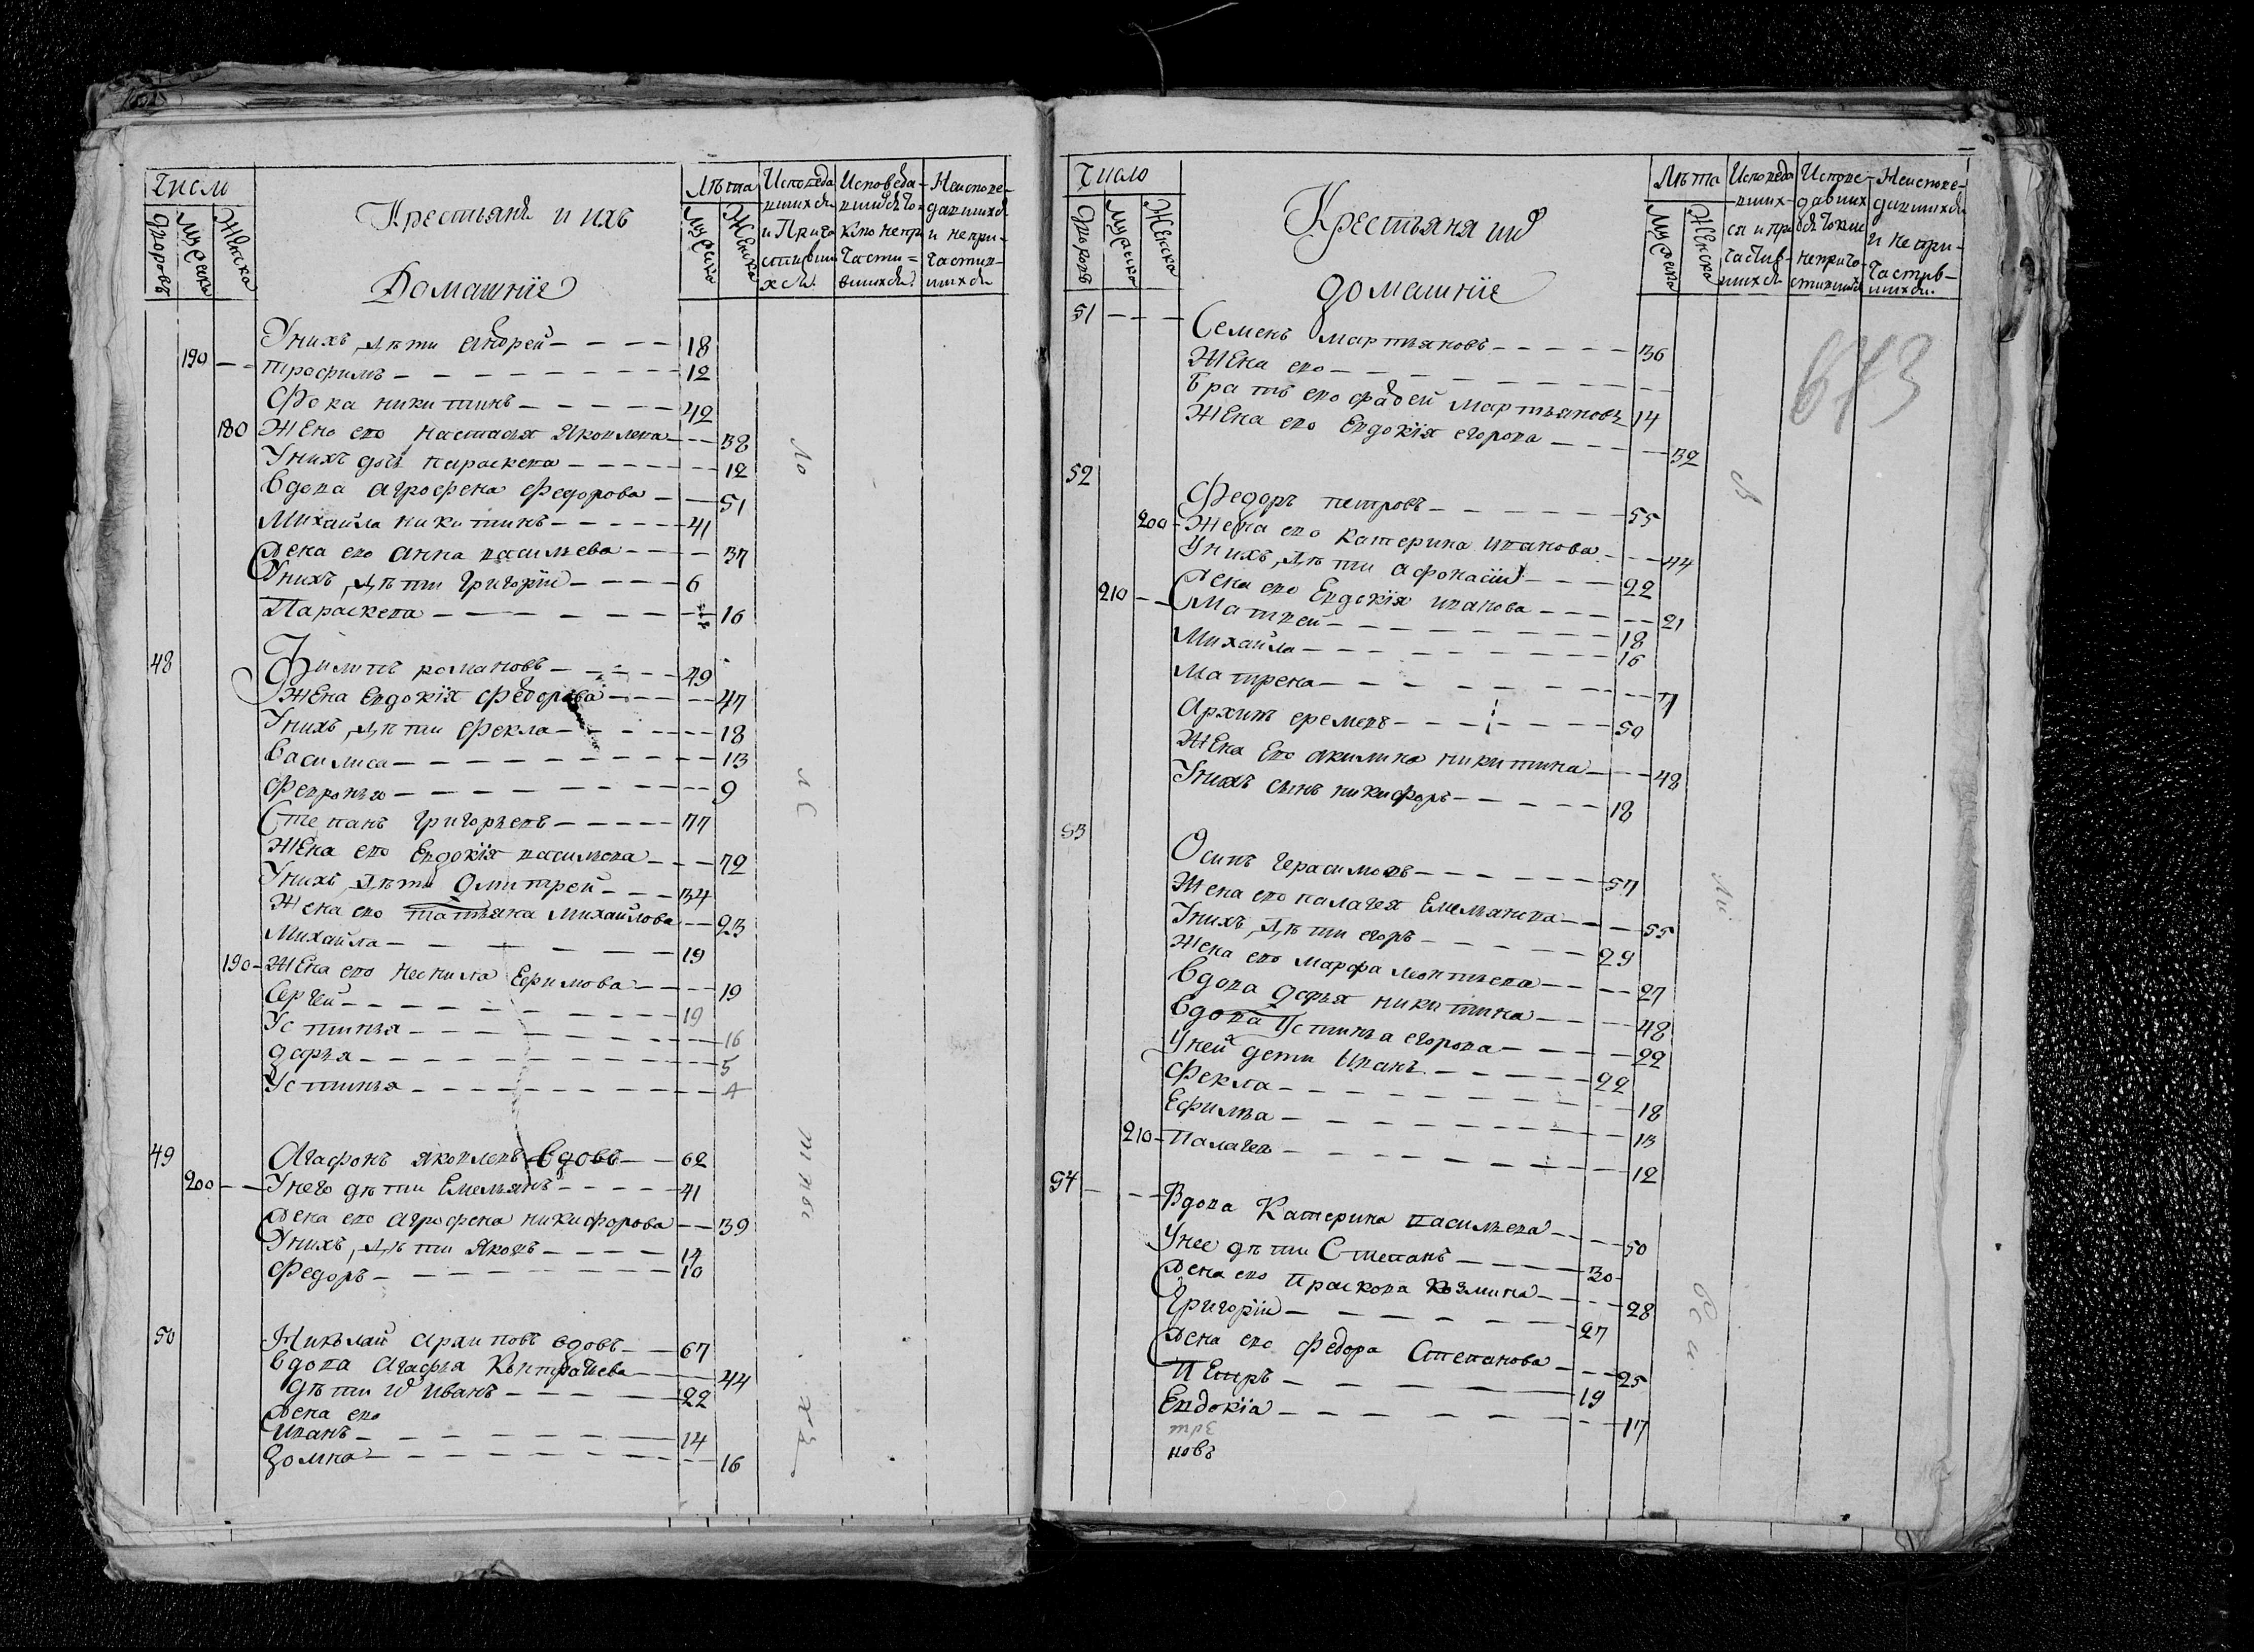 Число
Дворовъ
Мужска
Женска
Крестьянѣ и ихъ
Домашнїе
Лѣта
Мужска
Женска
Исповеда
вшихся
и Прича
стивши
хся.
Исповеда-
вшихся то-
кмо непри
части=
вшихся.
Неиспове-
давшихся
и непри-
части-
вшихся
Унихъ дѣти андрей 18
190 трофимъ 12
Фока никитинъ 42
180 Жена ево настасья Яковлева 38
Унихъ дочь параскева 12
Вдова агрофена федорова 51
Михайла никитинъ 41
Жена ево анна васильева 37
Унихъ дѣти григорїй 6
Параскева 16
48 Филипъ романовъ 49
Жена Евдокїя федорова 47
Унихъ дѣти фекла 18
Василиса 13
Февронья 9
Степанъ григорьевъ 77
Жена ево Евдокїя васильева 72
Унихъ дѣти дмитрей 34
Жена ево татьяна михайлова 23
Михайла 19
190 Жена ево неонила Ефимова 19
Сергей 19
Устинья 16
дарья 5
Устинья 4
49 Агафонъ яковлевъ вдовъ 62
200 Унего дѣти Емельянъ 41
Жена ево агрофена никифорова 39
Унихъ дѣти Яковъ 14
Федоръ 10
50 Николай архиповъ вдовъ 67
Вдова агафья Контратьева 44
дѣти Иванъ 22
Жена ево
Иванъ 14
домна 16
Число
Дворовъ
Мужска
Женска
Крестьяня и
домашнїе
Лѣта
Мужска
Женска
Исповеда
вших-
ся и при
части-
вшихся
Испове-
давших
ся токмо
неприча-
стивших
Неиспове-
давшихся
и непри-
частив-
шихся.
673
51
Семенъ мартьяновъ 36
Жена ево
Братъ ево фадей мартьяновъ 14
Жена ево Евдокїя егорова 32
52
Федоръ петровъ 55
200 Жена ево катерина иванова 44
Унихъ дѣти афонасїй 22
Жена ево Евдокїя иванова 21
210 Матвей 18
Михайла 16
Матрена 7
Архипъ еремевъ 50
Жена ево акилина никитина 48
Унихъ сынъ никифоръ 18
53
Осипъ герасимовъ 57
Жена ево палагея Емельянова 55
Унихъ дѣти егоръ 29
Жена ево марфа леонтьева 27
Вдова дарья никитина 48
Вдова Устинья егорова 22
Уней дети Иванъ 22
Фекла 18
Ефимья 13
210 Палагея 12
54 Вдова Катерина васильева 50
Унее дѣти Степанъ 30
Жена ево Прасковя Козмина 28
Григорїй 27
Жена ево федора Степанова 25
Петръ 19
Евдокїа 17
новъ